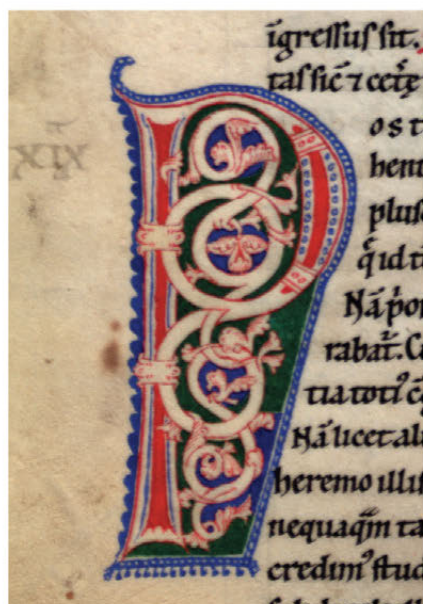 īgressus sit.
tas sic̄ ⁊ cetę
XIX
P
ost
hent
plus
qͥd t
Nā por
rabat̄. C
tia totꝰ c̄
Nā licet al
heremo illis
nequaqm̄ ta
credimꝰ stud